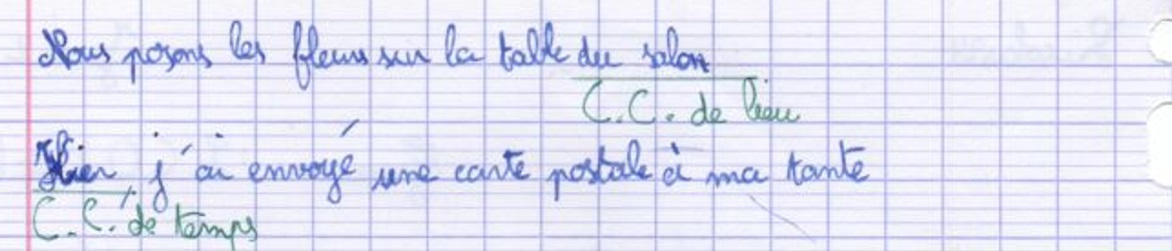 Nous posons les fleurs sur la table du salon
C.C. de lieu
Hier, j'ai envoyé une carte postale à ma tante
C.C. de temps